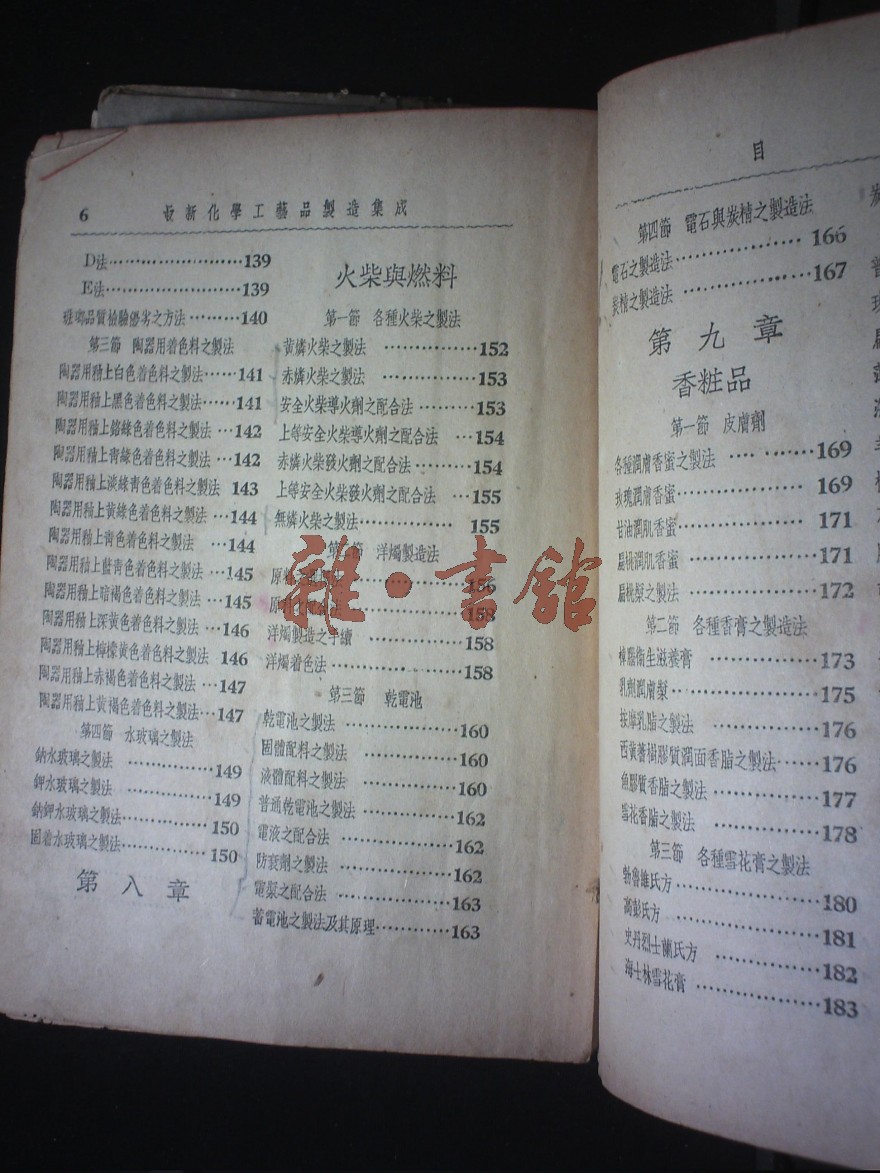 6 最新化學工藝品製造集成
D法 139
E法 139
琺瑯品質檢驗優劣之方法 140
第三節 陶器用着色料之製法
陶器用釉上白色着色料之製法 141
陶器用釉上黑色着色料之製法 141
陶器用釉上鉻綠色着色料之製法 142
陶器用釉上靑綠色着色料之製法 142
陶器用釉上淡綠靑色着色料之製法 143
陶器用釉上黃綠色着色料之製法 144
陶器用釉上靑色着色料之製法 144
陶器用釉上藍靑色着色料之製法 145
陶器用釉上暗褐色着色料之製法 145
陶器用釉上深黃色着色料之製法 146
陶器用釉上檸檬黃色着色料之製法 146
陶器用釉上赤褐色着色料之製法 147
陶器用釉上黃褐色着色料之製法 147
第四節 水玻璃之製法
鈉水玻璃之製法 149
鉀水玻璃之製法 149
鈉鉀水玻璃之製法 150
固着水玻璃之製法 150
第八章
火柴與燃料
第一節 各種火柴之製法
黃燐火柴之製法 152
赤燐火柴之製法 153
安全火柴導火劑之配合法 153
上等安全火柴導火劑之配合法 154
赤燐火柴發火劑之配合法 154
上等安全火柴發火劑之配合法 155
無燐火柴之製法 155
第二節 洋燭製造法
原料 156
原料 158
洋燭製造之手續 158
洋燭着色法 158
第三節 乾電池
乾電池之製法 160
固體配料之製法 160
液體配料之製法 160
普通乾電池之製法 162
電液之配合法 162
防衰劑之製法 162
電漿之配合法 163
蓄電池之製法及其原理 163
雜·書館
目
第四節 電石與炭精之製造法
電石之製造法 166
炭精之製造法 167
第九章
香粧品
第一節 皮膚劑
各種潤膚香蜜之製法 169
玫瑰潤膚香蜜 169
甘油潤肌香蜜 171
扁桃潤肌香蜜 171
扁桃梨之製法 172
第二節 各種香膏之製造法
衛生滋養膏 173
乳劑潤膚漿 175
按摩乳脂之製法 176
西黃蓍樹膠質潤面香脂之製法 176
魚膠質香脂之製法 177
雪花香脂之製法 178
第三節 各種雪花膏之製法
勃魯維氏方 180
高彭氏方 181
史丹烈士蘭氏方 182
海士林雪花膏 183